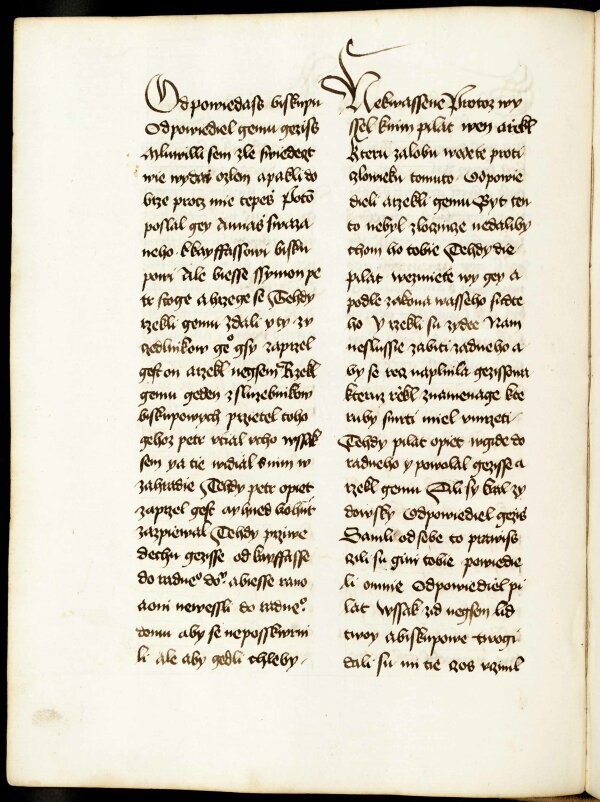 Odpowiedass biskupu
Odpowiediel gemu geziss
Mluwilli sem zle swiedect
wie wydaj ozlem apakli do
brze procz mie tepes Poto
poslal gey Annas swaza
neho k kayffassowi bisku
powi Ale biesse ssymon pe
tr stoge a hrzege se Tehdy
rzekli gemu zdali y ty zu
czedlnikow geo gsy zaprzel
gest on arzekl negsem Rzekl
gemu geden zsluzebnikow
biskupowych przietel toho
gehoz petr vtial vcho wssak
sem ya tie widial snim w
zahradie Tehdy petr opiet
zaprzel gest ay hned kohut
zazpiewal Tehdy prziwe
dechu gezisse od kayffasse
do radneo doo abiesse rano
aoni newessli do radneo
domu aby se neposskwrni
li Ale aby gedli chleby
Nekwassene Protoz wy
ssel knim pilat wen arzekl
Kteru zalobu wedete proti
czlowieku tomuto Odpowie
dieli arzekli gemu Byt ten
to nebyl zloczincze nedaliby
chom ho tobie Tehdy die
pilat wezmiete wy gey a
podle zakona wasseho sudte
ho Y rzekli su zydee Nam
neslussie zabiti zadneho a
by se rzecz naplnila gezissowa
kteruz rzekl znamenage kte
ruby smrti miel vmrzeti
Tehdy pilat opiet wgide do
radneho y powolal gezisse a
rzekl gemu Sili sy kral zy
dowsky Odpowiediel gezis
Samli od sebe to prawiss
czili su gini tobie powiedie
li omnie Odpowiediel pi
lat Wssak zid negsem lid
twoy abiskupowe twogi
dali su mi tie czos vczinil